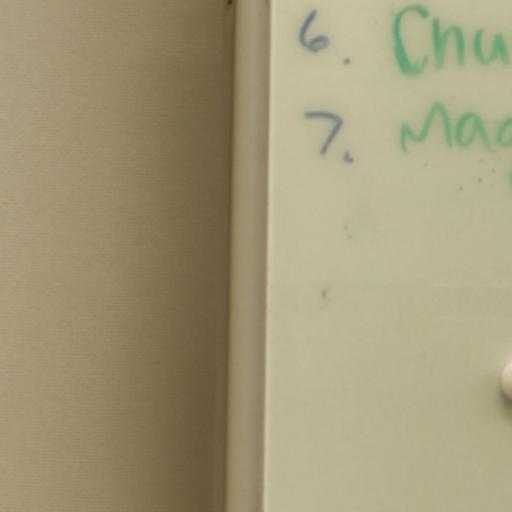 6. Chu
7. Mac